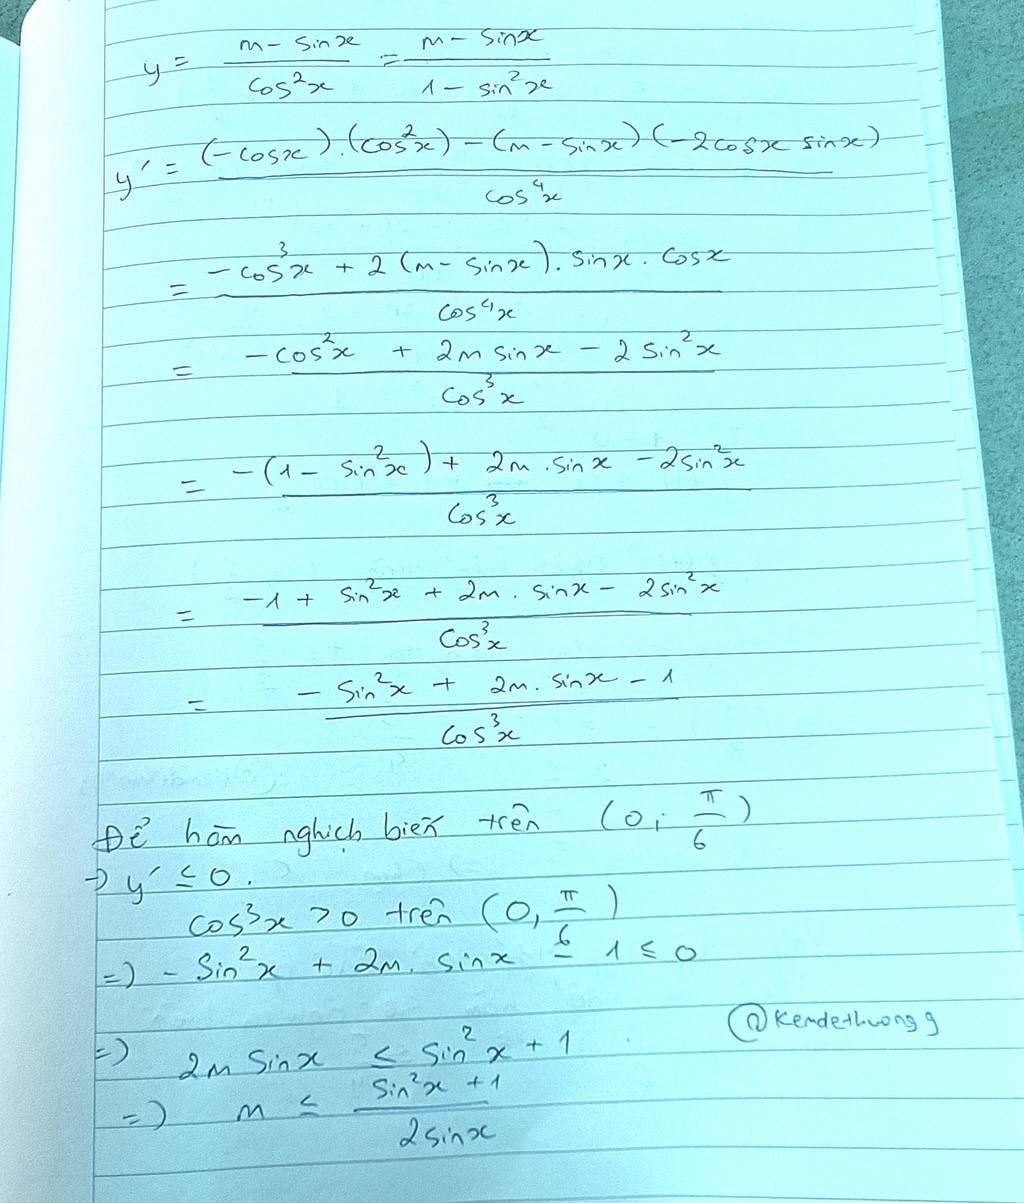 y = (m - sinx)/(cos²x) = (m - sinx)/(1 - sin²x)
y' = ((-cosx).(cos²x) - (m - sinx)(-2cosx sinx))/(cos⁴x)
= (-cos³x + 2(m - sinx). sinx. cosx)/(cos⁴x)
= (-cos²x + 2m sinx - 2 sin²x)/(cos³x)
= (-(1 - sin²x) + 2m .sinx - 2sin²x)/(cos³x)
= (-1 + sin²x + 2m . sinx - 2sin²x)/(cos³x)
= (-sin²x + 2m. sinx - 1)/(cos³x)
Để hàm nghịch biến trên (0; π/6)
→ y' ≤ 0.
cos³x > 0 trên (0, π/6)
=) - sin²x + 2m. sinx - 1 ≤ 0
@kemdethuong9
=) 2m sinx ≤ sin²x + 1
=) m ≤ (sin²x + 1)/(2sinx)